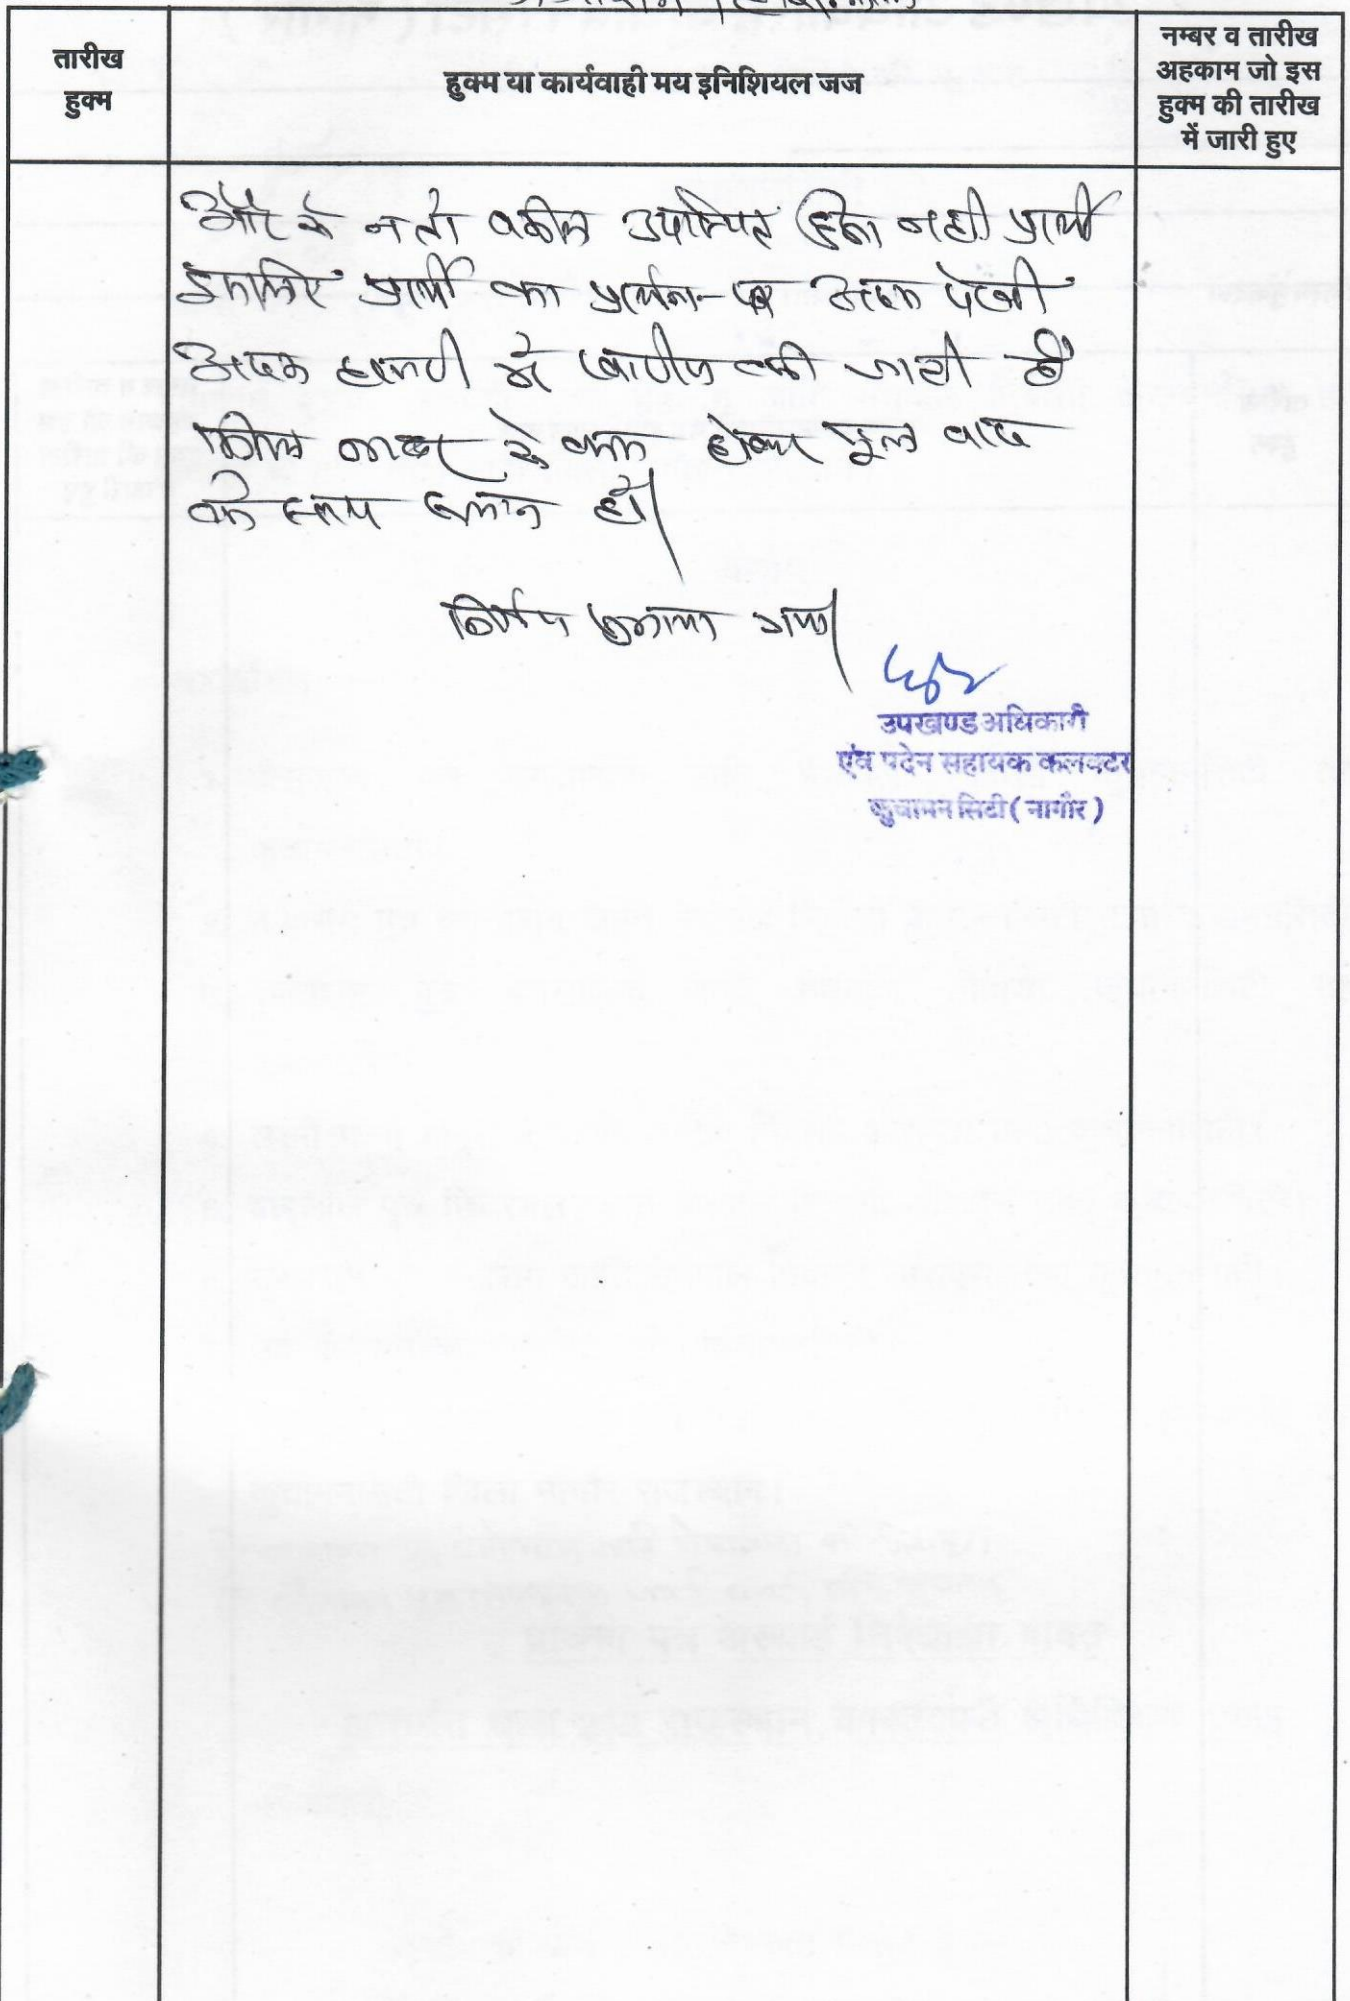 तारीख
हुक्म
हुक्म या कार्यवाही मय इनिशियल जज
नम्बर व तारीख
अहकाम जो इस
हुक्म की तारीख
में जारी हुए
और से न तो वकील उपस्थित हुआ नही प्रार्थी
इसलिए प्रार्थी का प्रार्थना-पत्र अदम पेरवी
अदम हाजरी में खारीज की जाती है
मिसल नम्बर से कम होकर मूल वाद
के साथ संलग्न हो।
निर्णय सुनाया गया।
उपखण्ड अधिकारी
एंव पदेन सहायक कलक्टर
कुचामन सिटी ( नागौर )